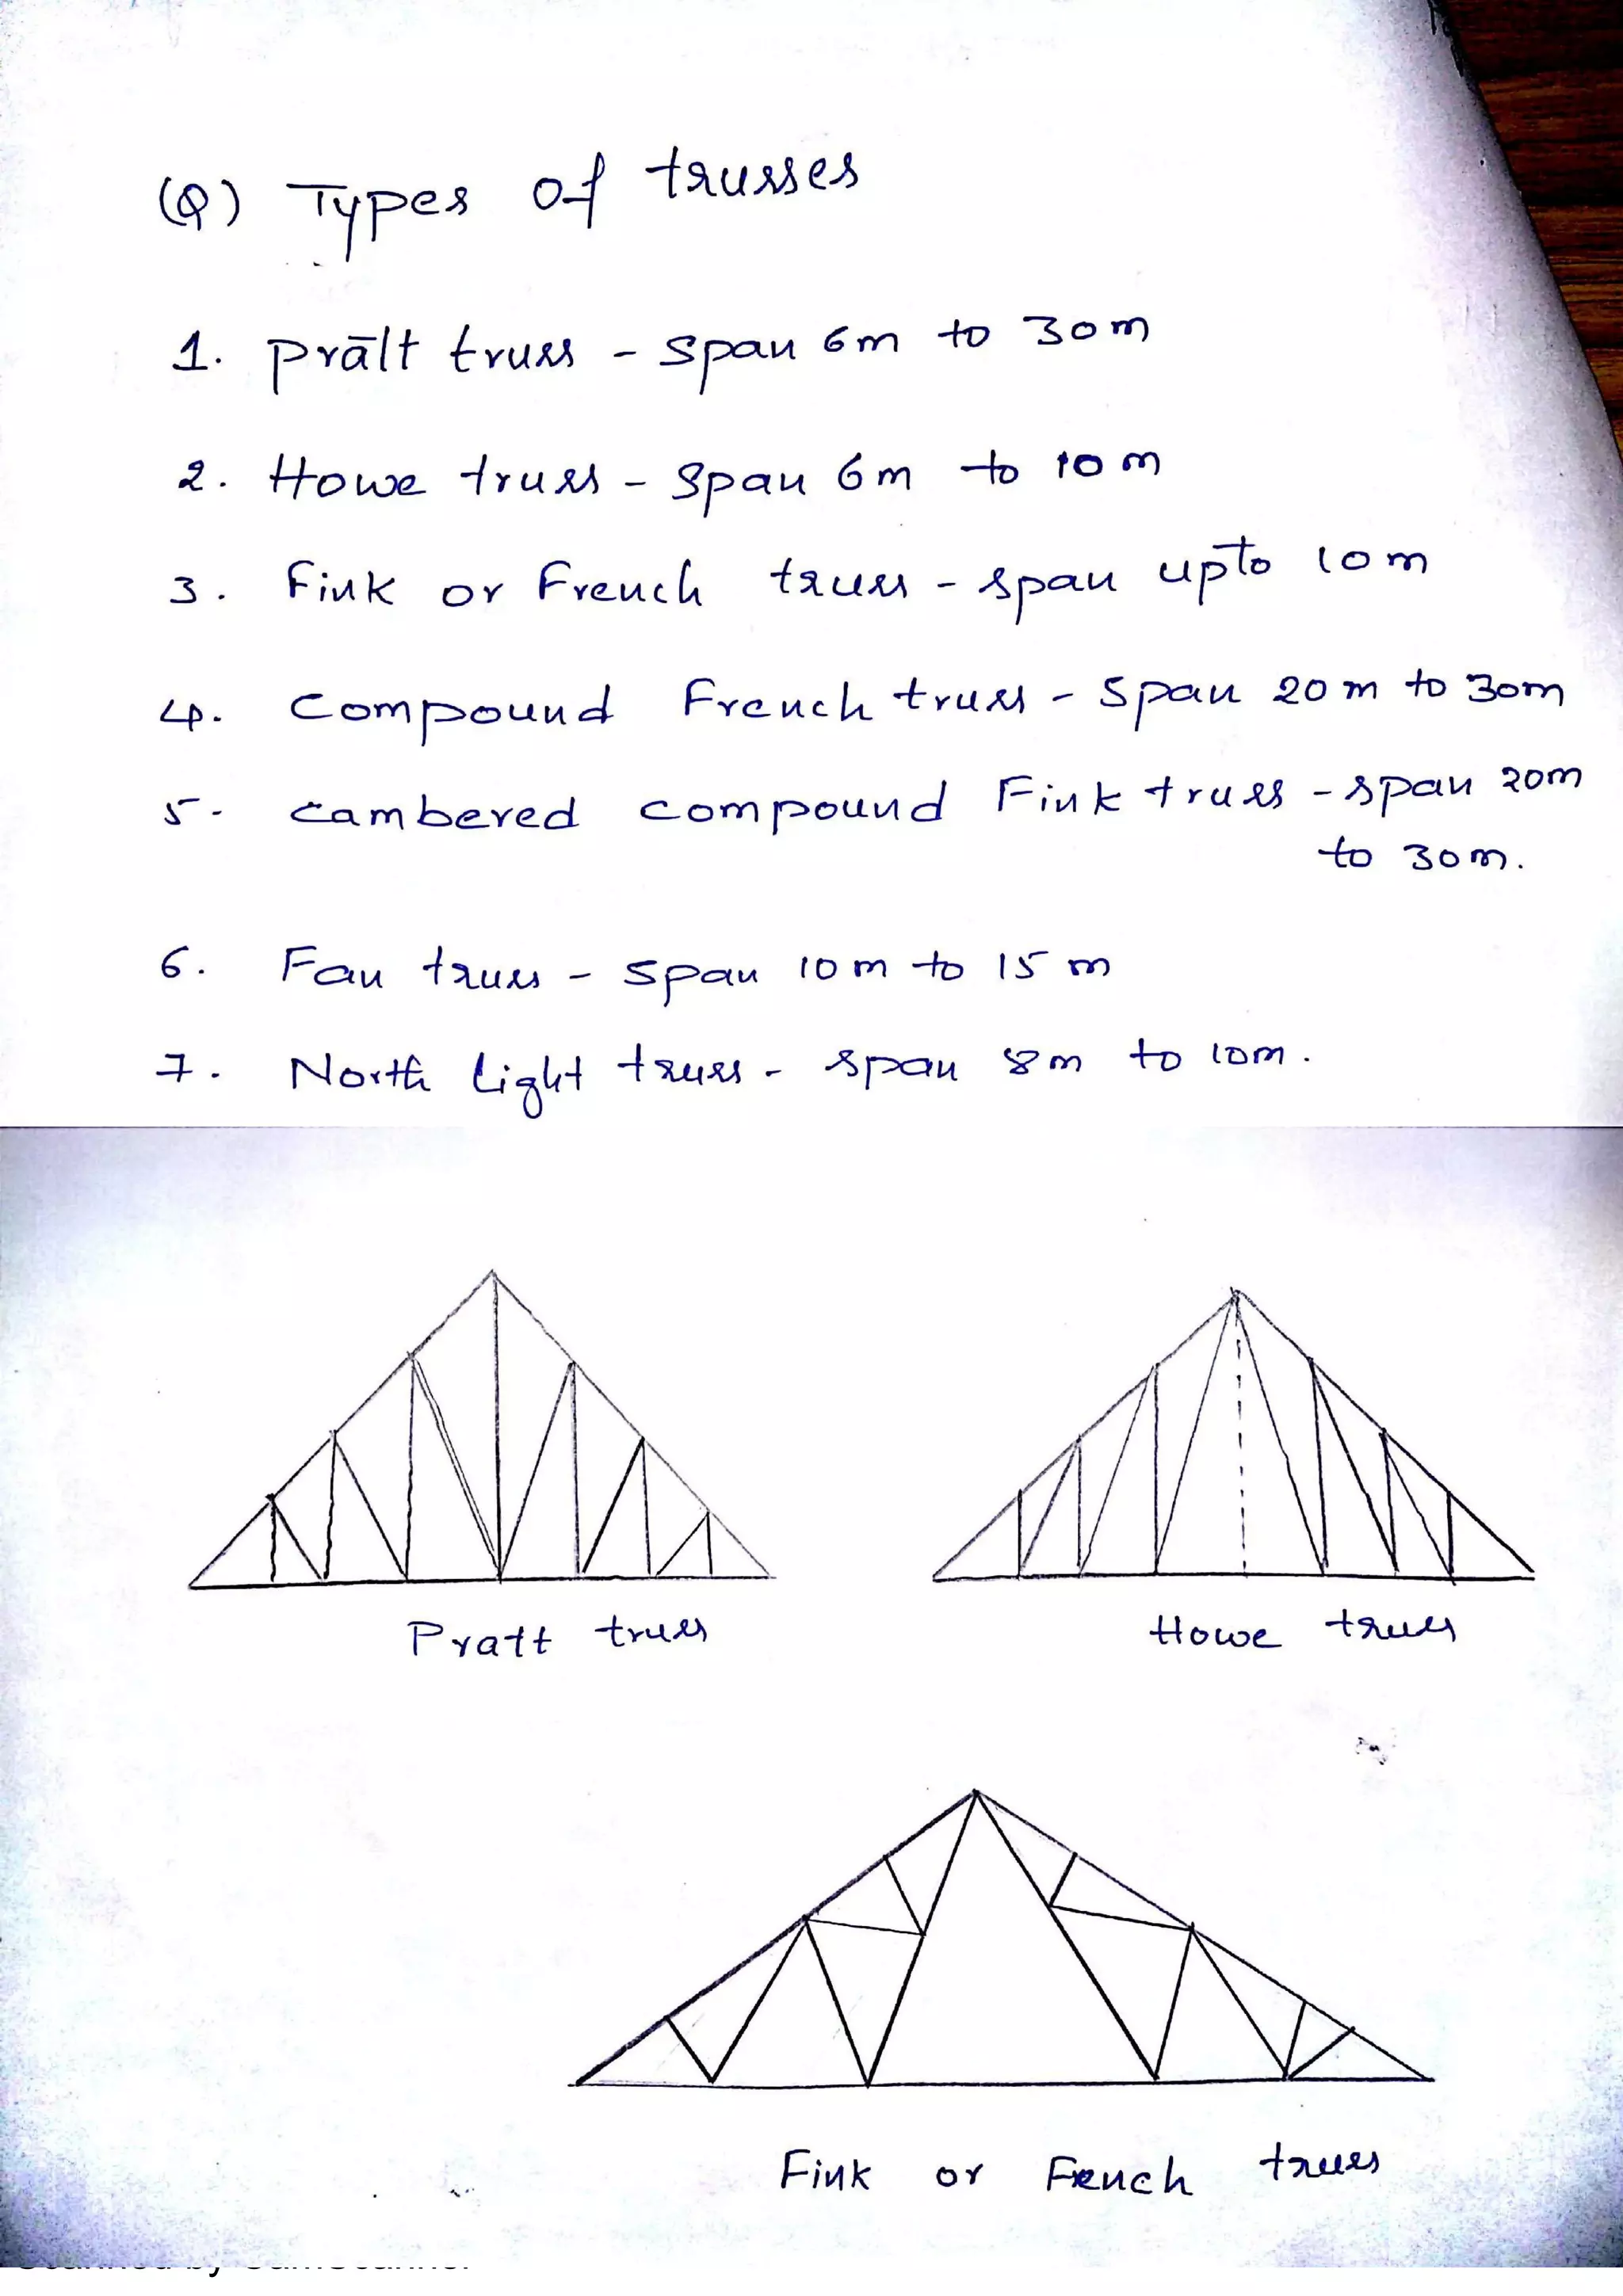 (Q) Types of trusses
1. Pratt truss - span 6m to 30m
2. Howe truss - span 6m to 10m
3. Fink or French truss - span upto 10m
4. Compound French truss - span 20m to 30m
5. Cambered compound Fink truss - span 20m
to 30m.
6. Fan truss - span 10m to 15m
7. North light truss - span 8m to 10m.
Pratt truss
Howe truss
Fink or French truss
Scanned by CamScanner